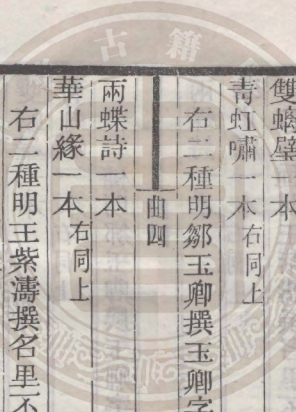 雙螭璧一本
青虹嘯一本右同上
右二種明鄒玉卿撰玉卿字
曲四
兩蝶詩一本
華山緣一本右同上
右二種明王紫濤撰名里不